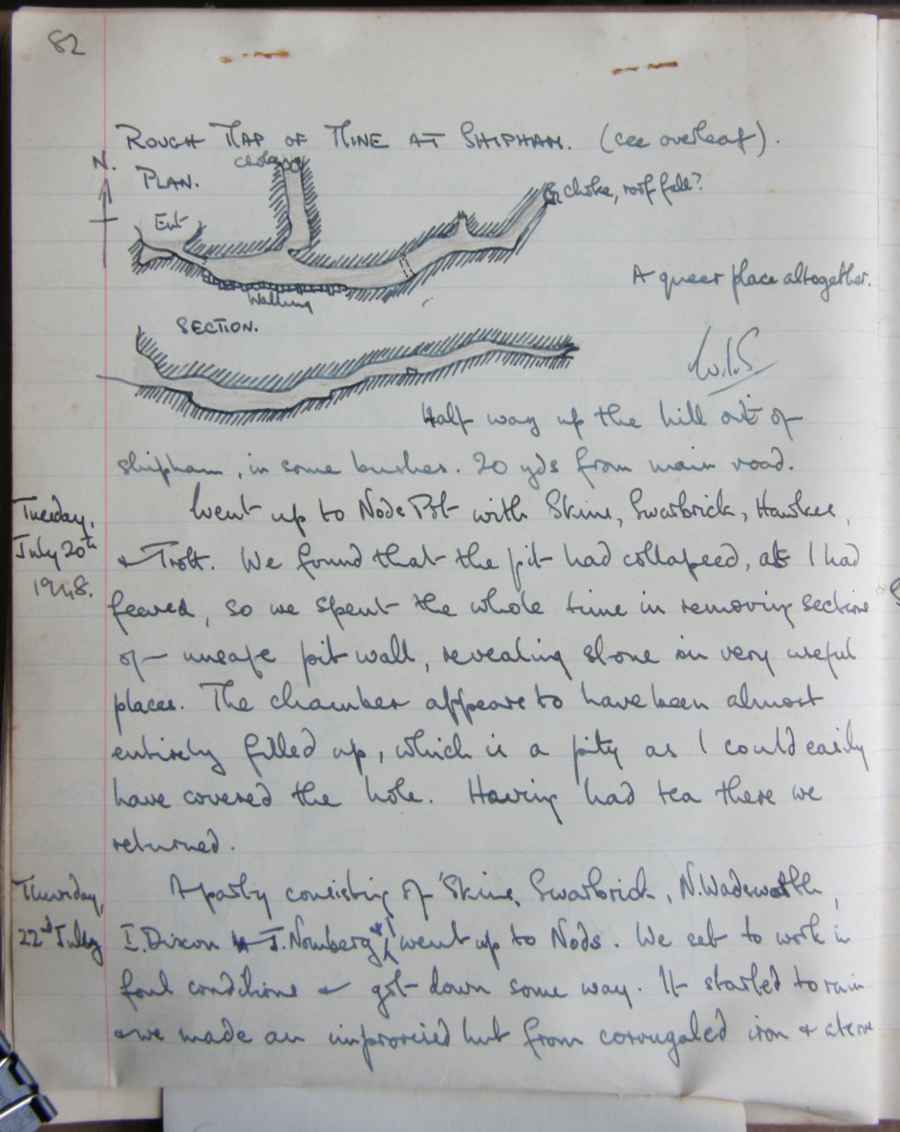 82
ROUGH MAP OF MINE AT SHIPHAM. (see overleaf).
N.
PLAN.
choke, roof fall?
Ent
A queer place altogether.
Walling
SECTION.
W.I.S
Half way up the hill out of
Shipham, in some bushes. 20 yds from main road.
Tuesday,
July 20th
1948.
Went up to Node Pot with Skine, Swarbrick, Hawkes,
& Trott. We found that the pit had collapsed, as I had
feared, so we spent the whole time in removing sections
of unsafe pit wall, revealing stone in very useful
places. The chamber appears to have been almost
entirely filled up, which is a pity as I could easily
have covered the hole. Having had tea there we
returned.
Thursday,
22nd July
A party consisting of Skine, Swarbrick, N. Wadsworth,
I. Dixon J. Nomberg & I went up to Nods. We set to work in
foul conditions & got down some way. It started to rain
& we made an improvised hut from corrugated iron &